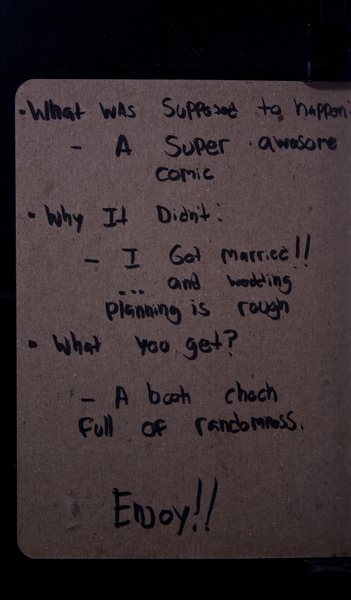 • What was Supposed to happen:
- A Super awesome
comic
• Why It Didn't:
- I Got married!!
... and wedding
planning is rough
• What you get?
- A book chock
full of randomness.
Enjoy!!